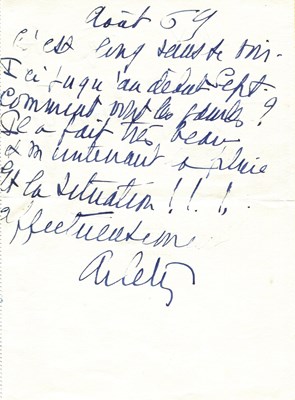 Août 69
C'est long sans te voir.
Ici jusqu'au début Sept.
Comment vont les gaules ?
Il a fait très beau
& maintenant a pluie
Et la situation !!!
affectueusement
Arletty